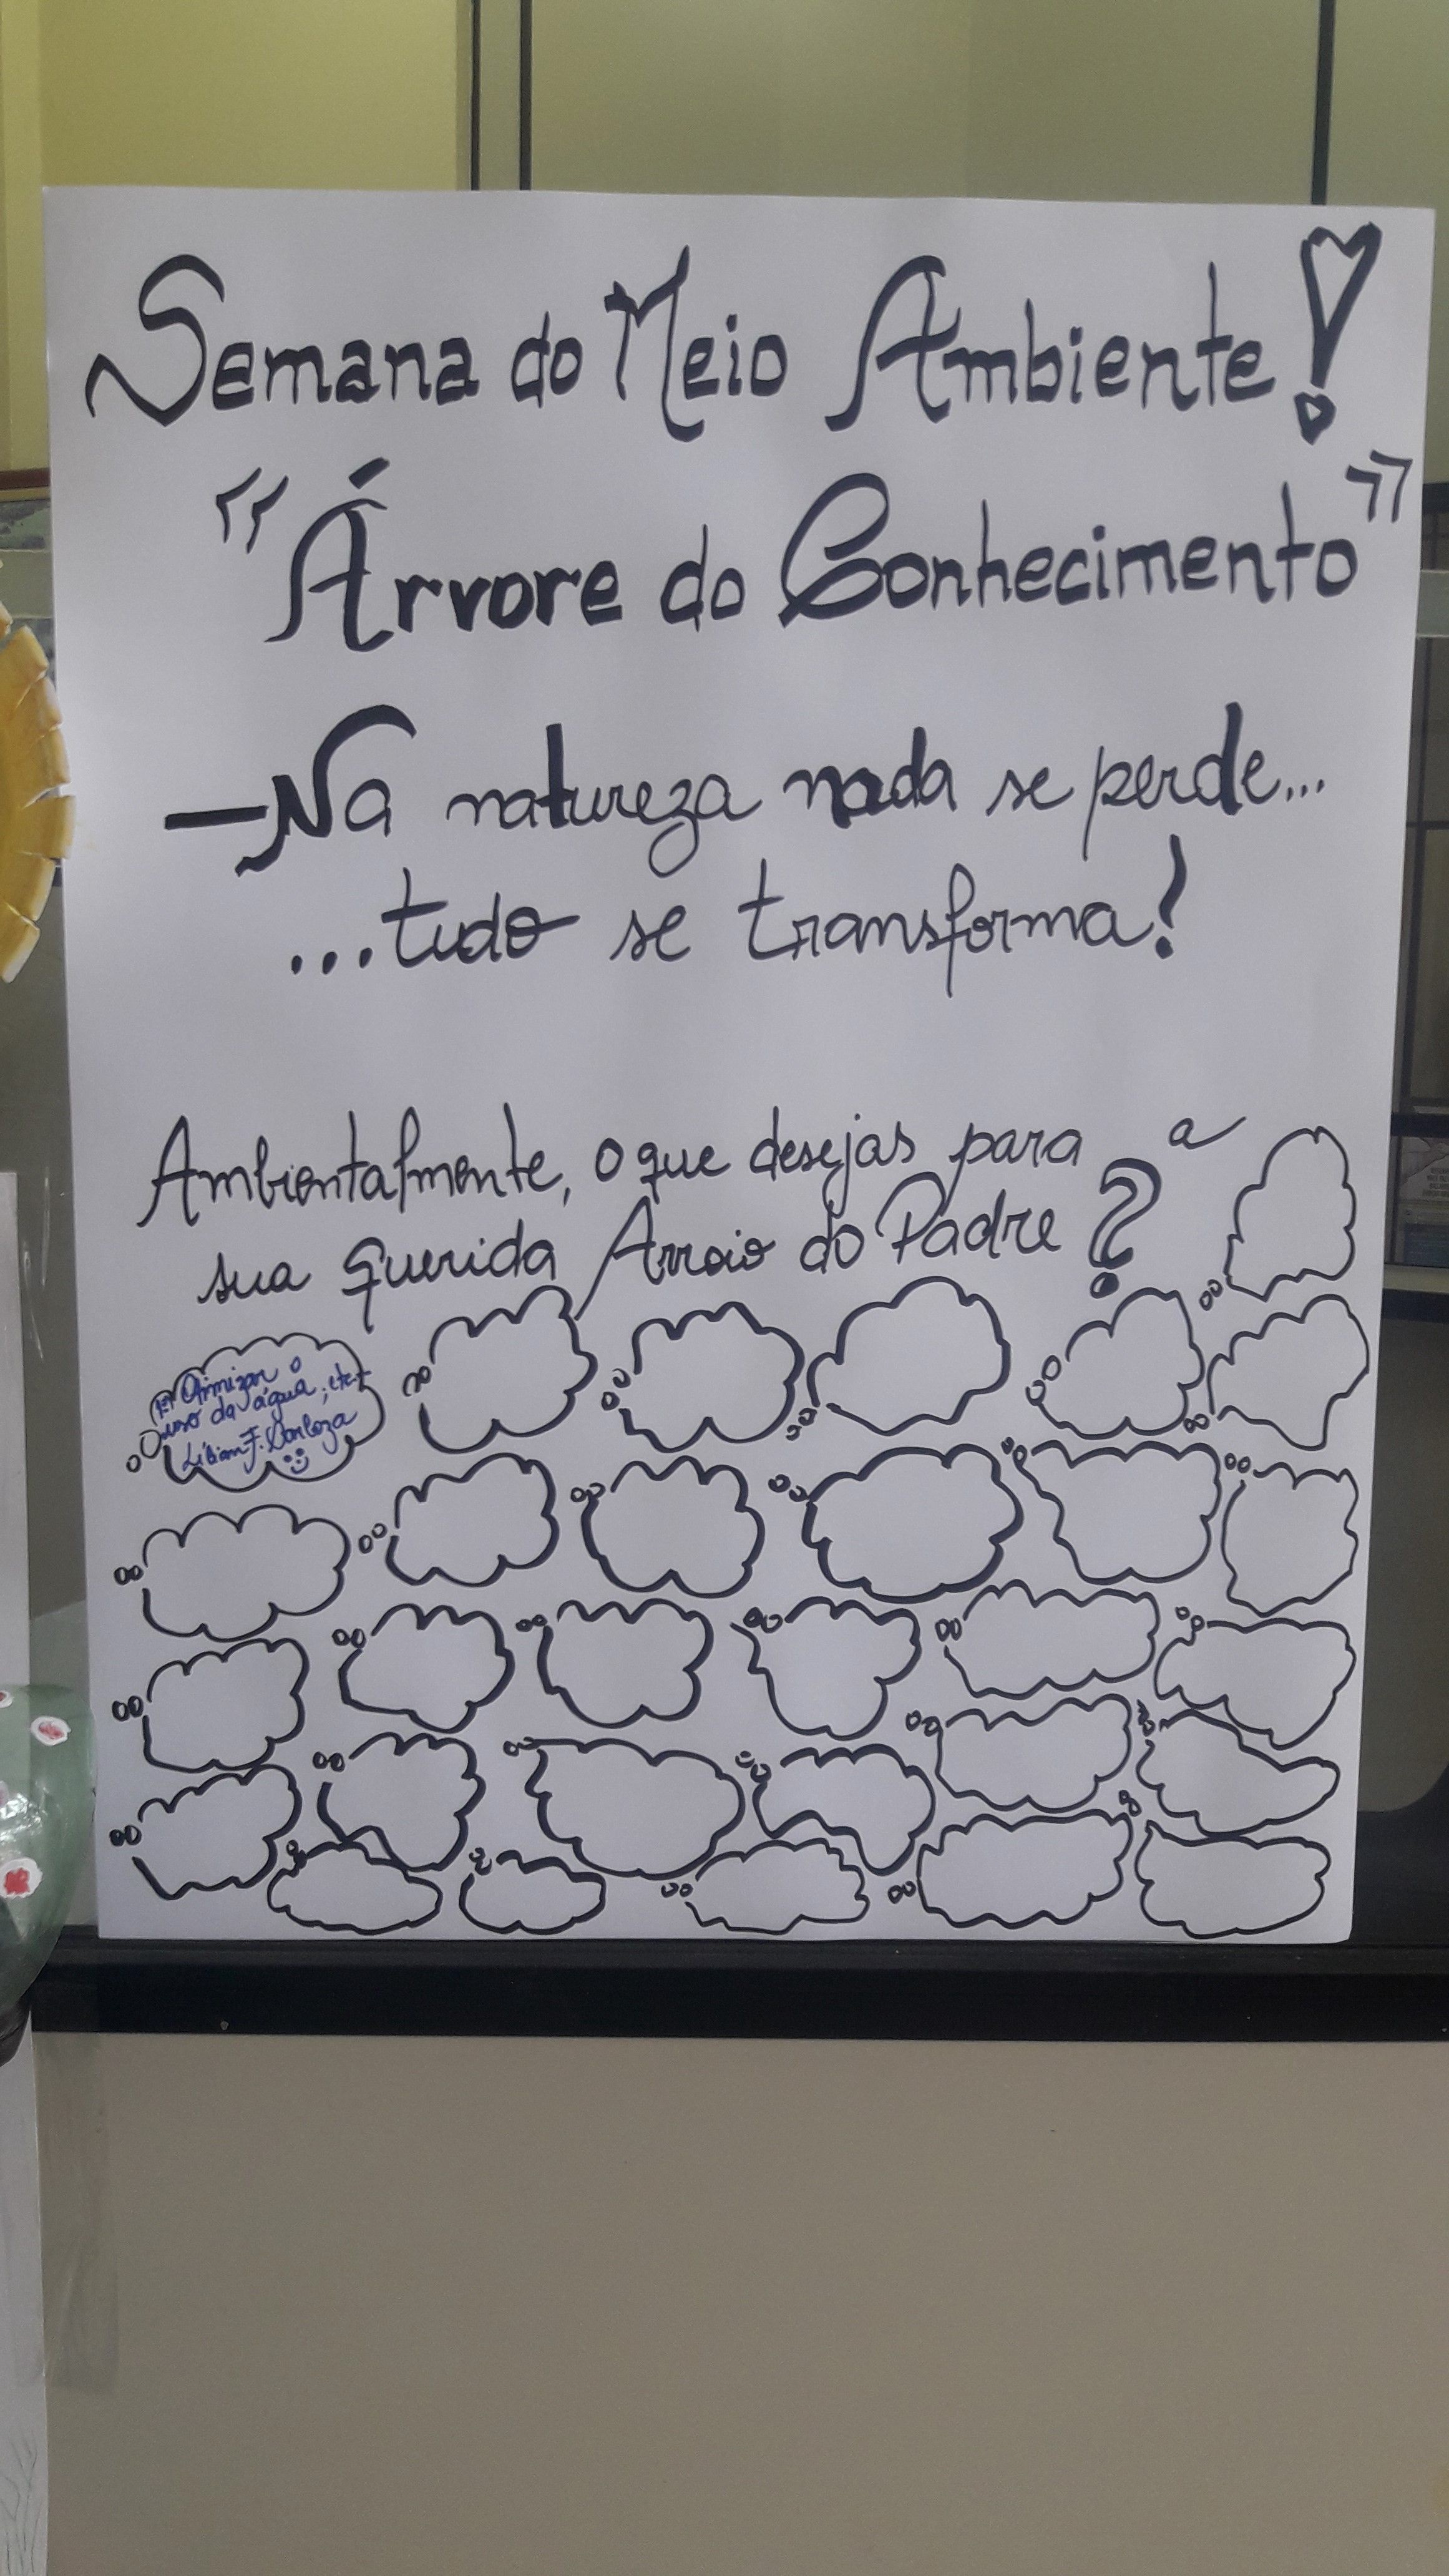 Semana do Meio Ambiente!
"Árvore do Conhecimento"
—Na natureza nada se perde...
...tudo se transforma!
Ambientalmente, o que desejas para a
sua querida Arroio do Padre?
Otimizar o
uso da água, etc.